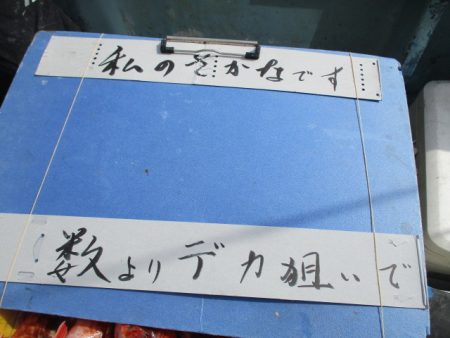 私のさかなです
数よりデカ狙いで